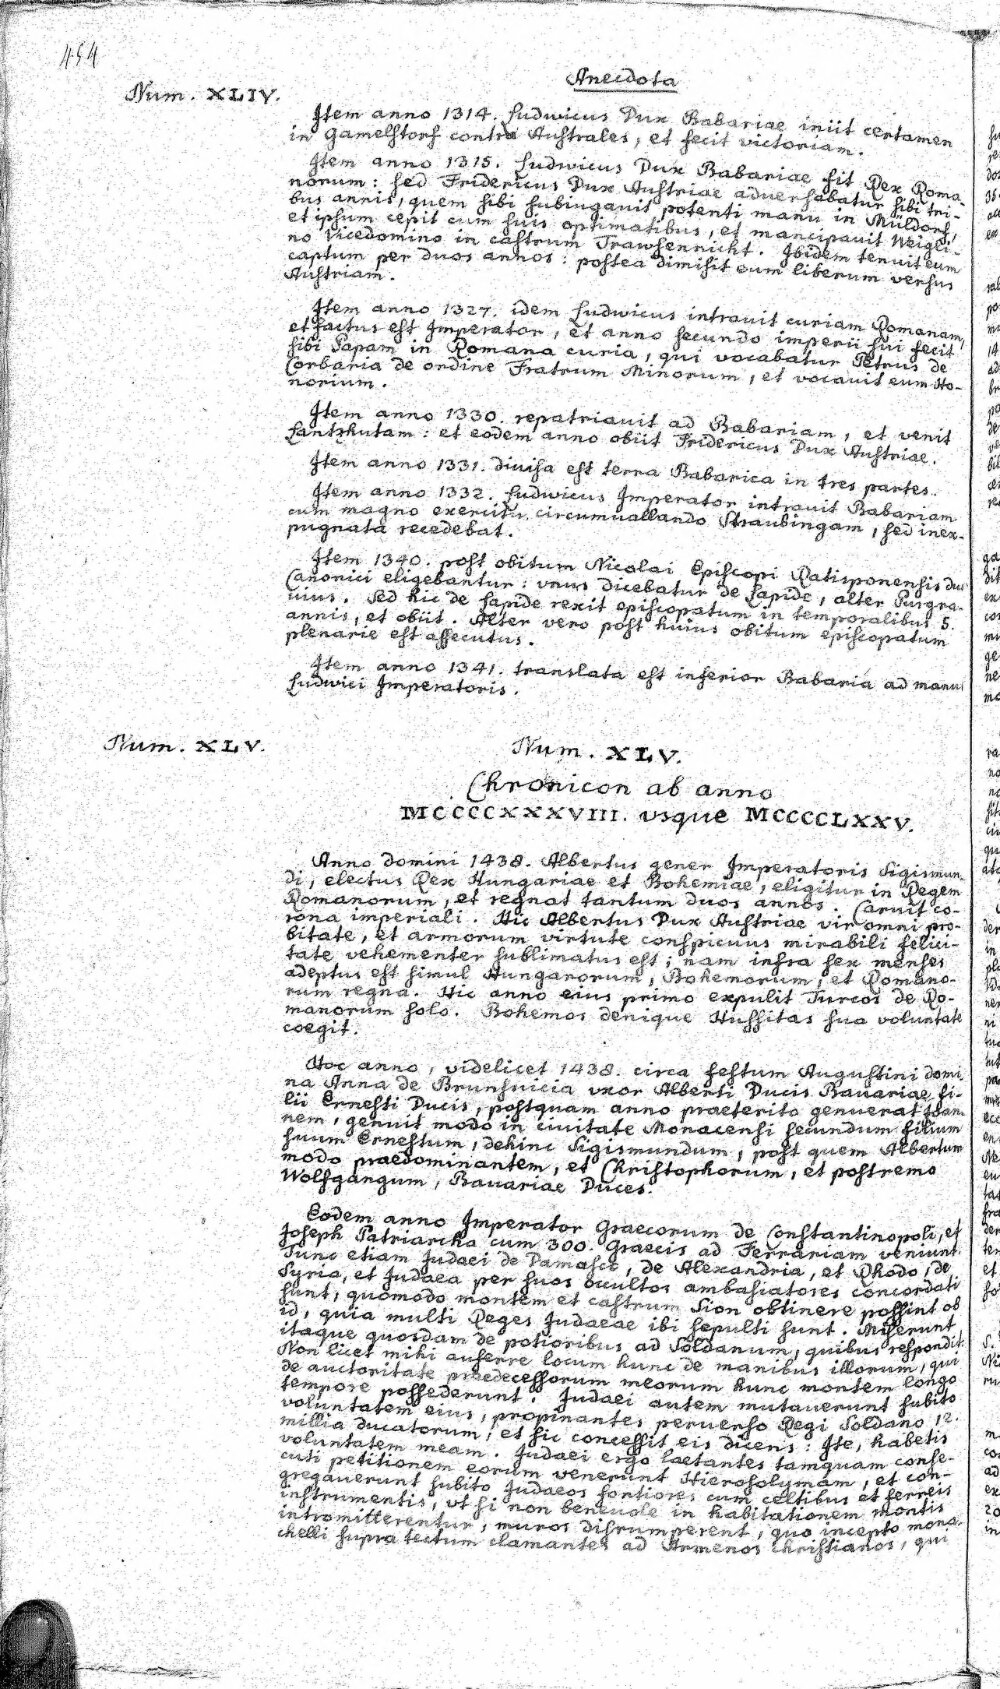 454
Anecdota
Num. XLIV.
Item anno 1314. Ludwicus Dux Babariae iniit certamen
in Gamelstorf contra Australes, et fecit victoriam.
Item anno 1315. Ludwicus Dux Babariae fit Rex Roma-
norum: sed Fridericus Dux Austriae adversabatur sibi tri-
bus annis, quem sibi subiugavit potenti manu in Müldorf,
et ipsum cepit cum suis optimatibus, et mancipavit Weigli-
no Vicedomino in castrum Trawsennicht. Ibidem tenuit eum
captum per duos annos: postea dimisit eum liberum versus
Austriam.
Item anno 1327. idem Ludwicus intravit curiam Romanam,
et factus est Imperator, et anno secundo imperii sui fecit
sibi Papam in Romana curia, qui vocabatur Petrus de
Corbaria de ordine Fratrum Minorum, et vocavit eum Ho-
norium.
Item anno 1330. repatriavit ad Babariam, et venit
Lantzhutam: et eodem anno obiit Fridericus Dux Austriae.
Item anno 1331. divisa est terra Babarica in tres partes.
Item anno 1332. Ludwicus Imperator intravit Babariam
cum magno exercitu, circumvallando Straubingam, sed inex-
pugnata recedebat.
Item 1340. post obitum Nicolai Episcopi Ratisponensis duo
Canonici eligebantur: vnus dicebatur de Lapide, alter Purgra-
vius. Sed hic de Lapide rexit episcopatum in temporalibus 5.
annis, et obiit. Alter vero post huius obitum episcopatum
plenarie est assecutus.
Item anno 1341. translata est inferior Babaria ad manus
Ludwici Imperatoris.
Num. XLV.
Num. XLV.
Chronicon ab anno
MCCCCXXXVIII. usque MCCCCLXXV.
Anno domini 1438. Albertus gener Imperatoris Sigismun-
di, electus Rex Hungariae et Bohemiae, eligitur in Regem
Romanorum, et regnat tantum duos annos. Caruit co-
rona imperiali. Hic Albertus Dux Austriae vir omni pro-
bitate, et armorum virtute conspicuus mirabili felici-
tate vehementer sublimatus est; nam infra sex menses
adeptus est simul Hungarorum, Bohemorum, et Romano-
rum regna. Hic anno eius primo expulit Turcos de Ro-
manorum solo. Bohemos denique Hussitas sua voluntate
coegit.
Hoc anno, videlicet 1438. circa festum Augustini domi-
na Anna de Brunsvicia vxor Alberti Ducis Bavariae, fi-
lii Ernesti Ducis, postquam anno praeterito genuerat Ioan-
nem, genuit modo in civitate Monacensi secundum filium
suum Ernestum, dehinc Sigismundum, post quem Albertum
modo praedominantem, et Christophorum, et postremo
Wolfgangum, Bavariae Duces.
Eodem anno Imperator Graecorum de Constantinopoli, et
Joseph Patriarcha cum 300. Graecis ad Ferrariam veniunt.
Tunc etiam Judaei de Damasco, de Alexandria, et Rhodo, de
Syria, et Judaea per suos occultos ambasiatores concordati
sunt, quomodo montem et castrum Sion obtinere possint ob
id, quia multi Reges Judaeae ibi sepulti sunt. Miserunt
itaque quosdam de potioribus ad Soldanum, quibus respondit:
Non licet mihi auferre locum hunc de manibus illorum, qui
de auctoritate praedecessorum meorum hunc montem longo
tempore possederunt. Judaei autem mutaverunt subito
voluntatem eius, propinantes perverso Regi Soldano 12.
millia ducatorum, et sic concessit eis dicens: Ite, habetis
voluntatem meam. Judaei ergo laetantes tamquam conse-
cuti petitionem eorum venerunt Hierosolymam, et con-
gregaverunt subito Judaeos fortiores cum celtibus et ferreis
instrumentis, vt si non benevole in habitationem montis
intromitterentur, muros disrumperent, quo incepto mona-
chelli supra tectum clamantes ad Armenos christianos, qui